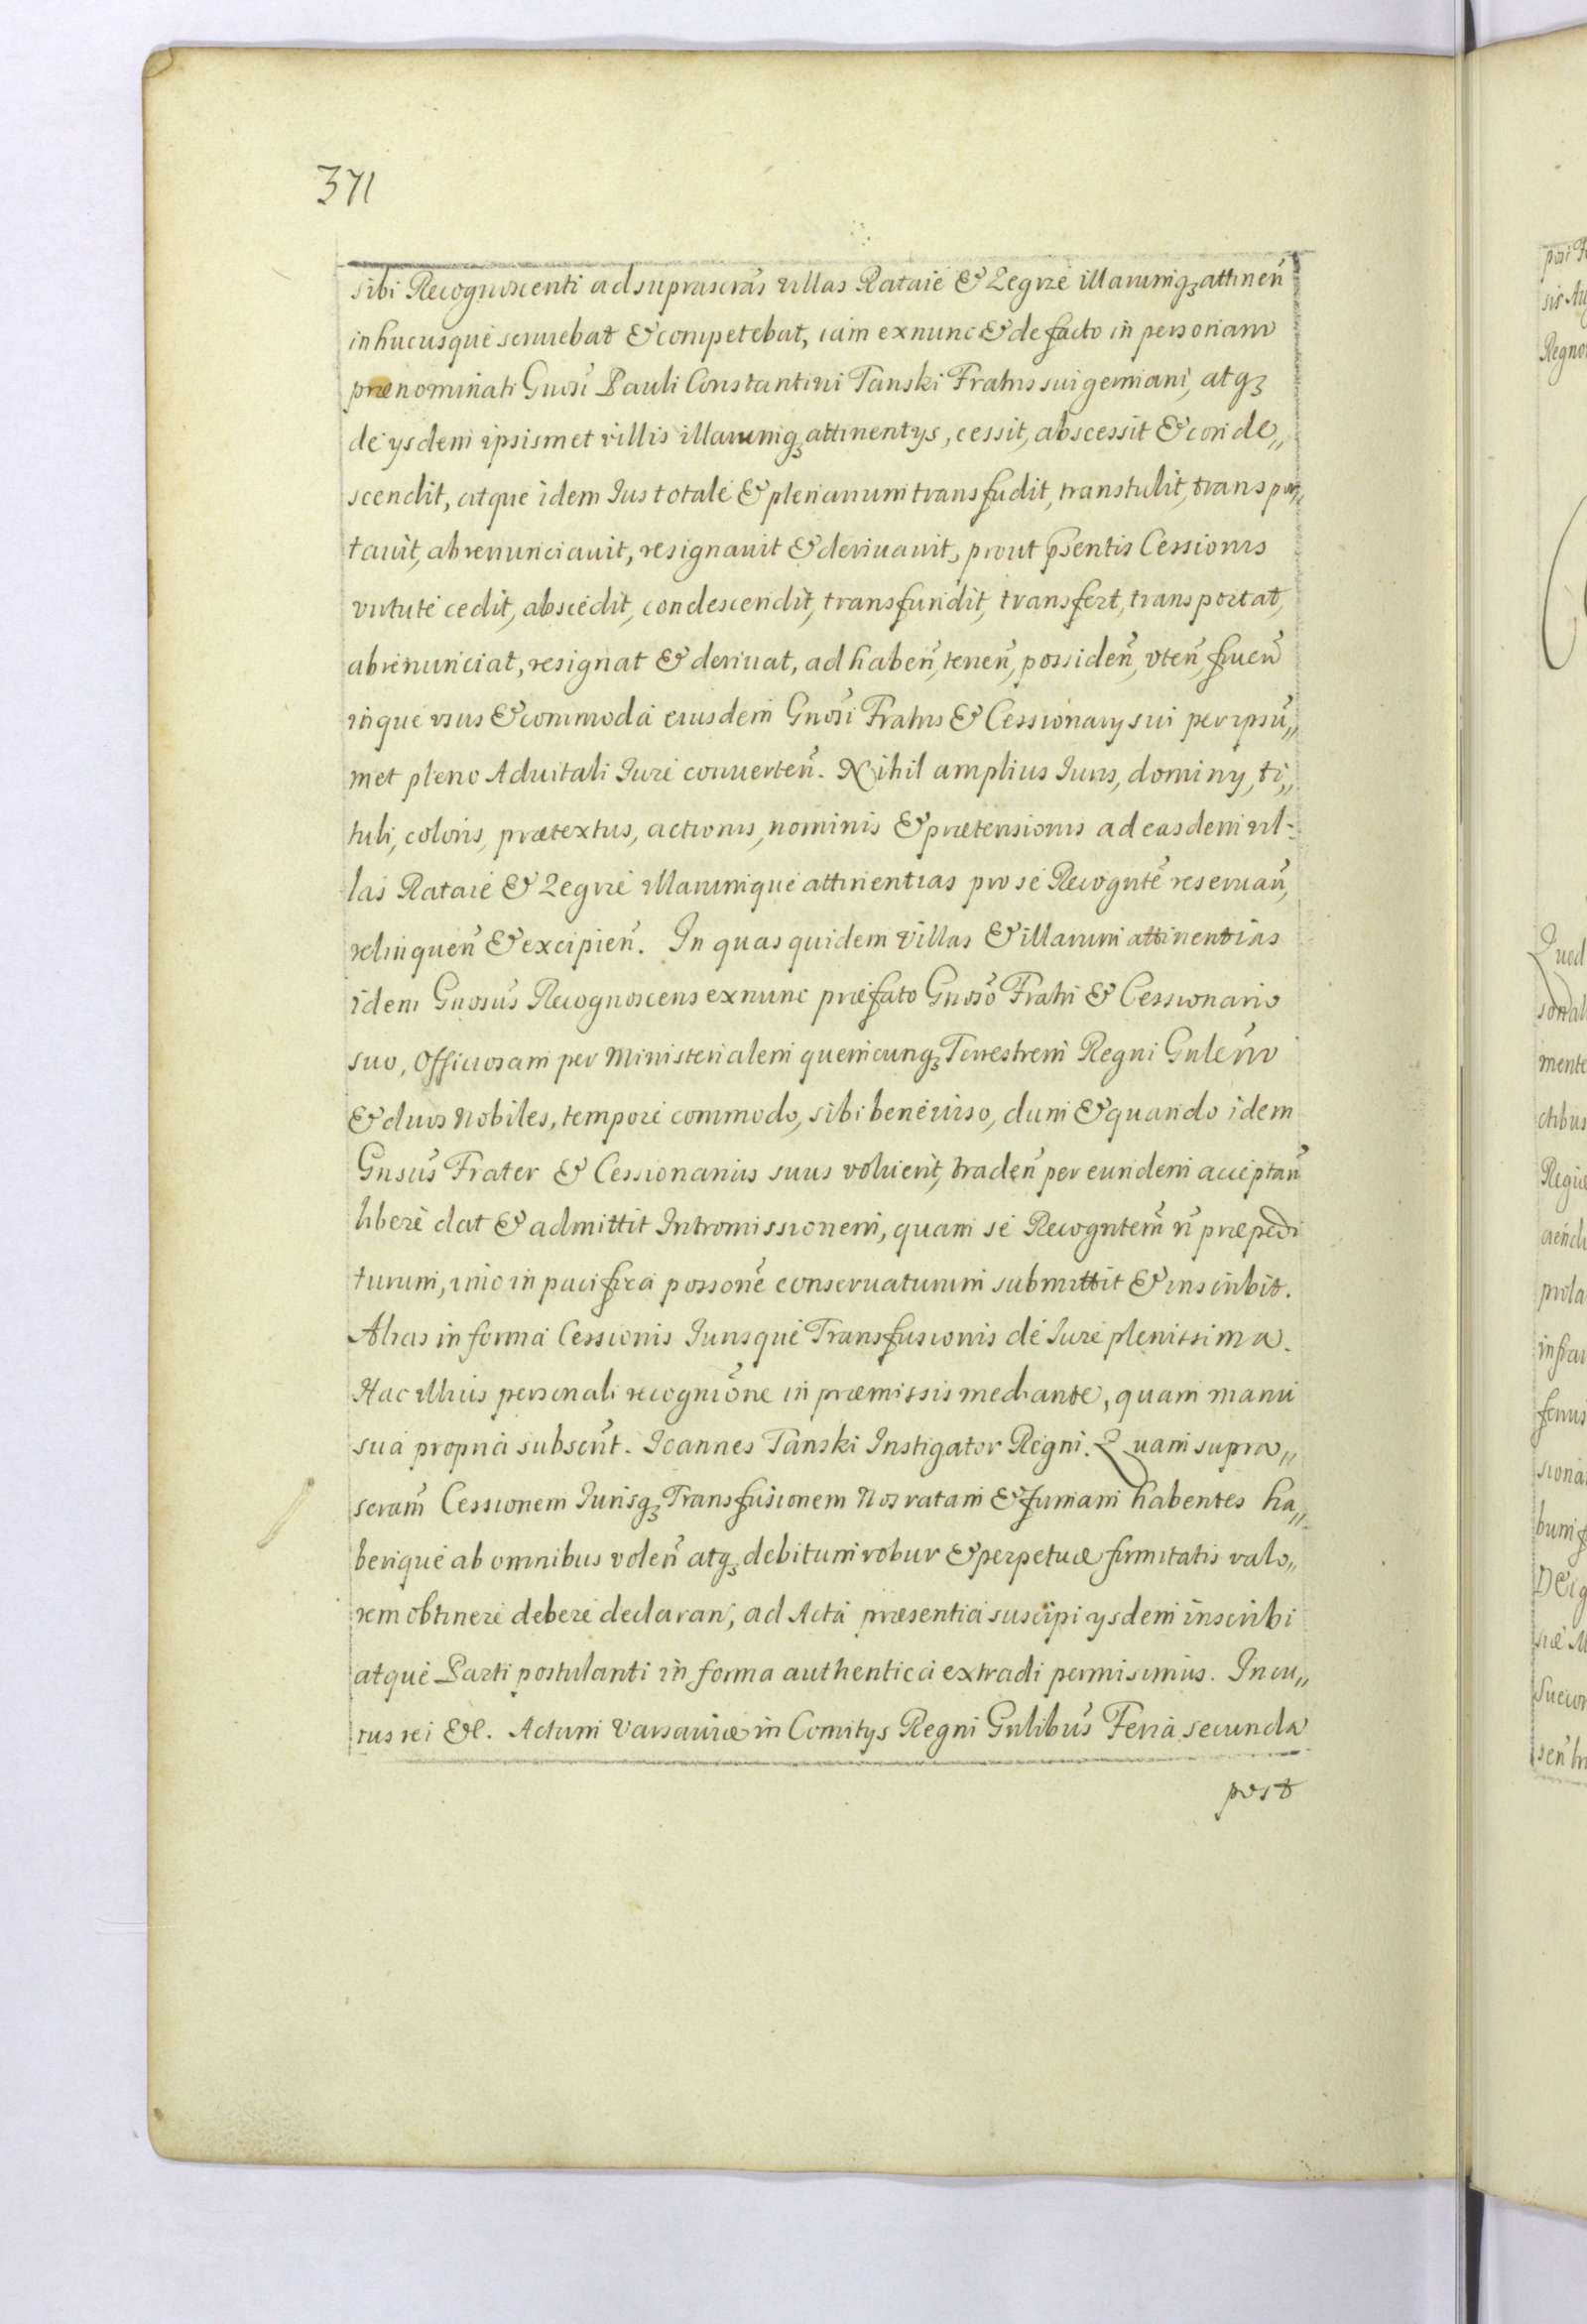 371
sibi Recognoscenti ad suprascrãs villas Rataie & Zegrze illarumq₃ attineñ
inhucusque seruiebat & competebat, iam exnunc & de facto in personam
prænominati Gnosi Pauli Constantini Tanski Fratris sui germani, atq₃
de ysdem ipsismet villis illarumq₃ attinentys, cessit, abscessit & conde„
scendit, atque idem Ius totale & plenarium transfudit, transtulit, transpor„
tauit, abrenunciauit, resignauit & deriuauit, prout p̃sentis Cessionis
virtute cedit, abscedit, condescendit, transfundit, transfert, transportat,
abrenunciat, resignat & deriuat, ad habeñ, teneñ, possideñ, vteñ, frueñ
inque vsus & commoda eiusdem Gnosi Fratris & Cessionary sui per ipsũ„
met pleno Aduitali Iure conuerteñ. Nihil amplius Iuris, dominy, ti„
tuli, coloris, prætextus, actionis, nominis & prætensionis ad easdem vil-
las Rataie & Zegrze illarumque attinentias pro se Recognte͂ reseruañ,
relinqueñ & excipieñ. In quas quidem Villas & illarum attinentias
idem Gnosus Recognoscens exnunc præfato Gnoso Fratri & Cessionario
suo, Officiosam per Ministerialem quemcunq₃ Terrestrem Regni Gnlem
& duos Nobiles, tempore commodo, sibi beneviso, dum & quando idem
Gnsus Frater & Cessionarius suus voluerit, tradeñ per eundem acceptañ
libere dat & admittit Intromissionem, quam se Recogntem ñ præpedi
turum, imo in pacifica possone͂ conseruaturum submittit & inscribit.
Alias in forma Cessionis Iurisque Transfusionis de Iure plenissima.
Hac illius personali recognio͂ne in præmissis mediante, quam manu
sua propria subscrit. Ioannes Tanski Instigator Regni. Quam supra„
scram Cessionem Iurisq₃ Transfusionem Nos ratam & firmam habentes ha„
berique ab omnibus voleñ atq₃ debitum robur & perpetuæ firmitatis valo„
rem obtinere debere declarañ, ad Acta præsentia suscipi ysdem inscribi
atque Parti postulanti in forma authentica extradi permisimus. In cu„
ius rei &c. Actum Varsauiæ in Comitys Regni Gnlibus Feria secunda
post